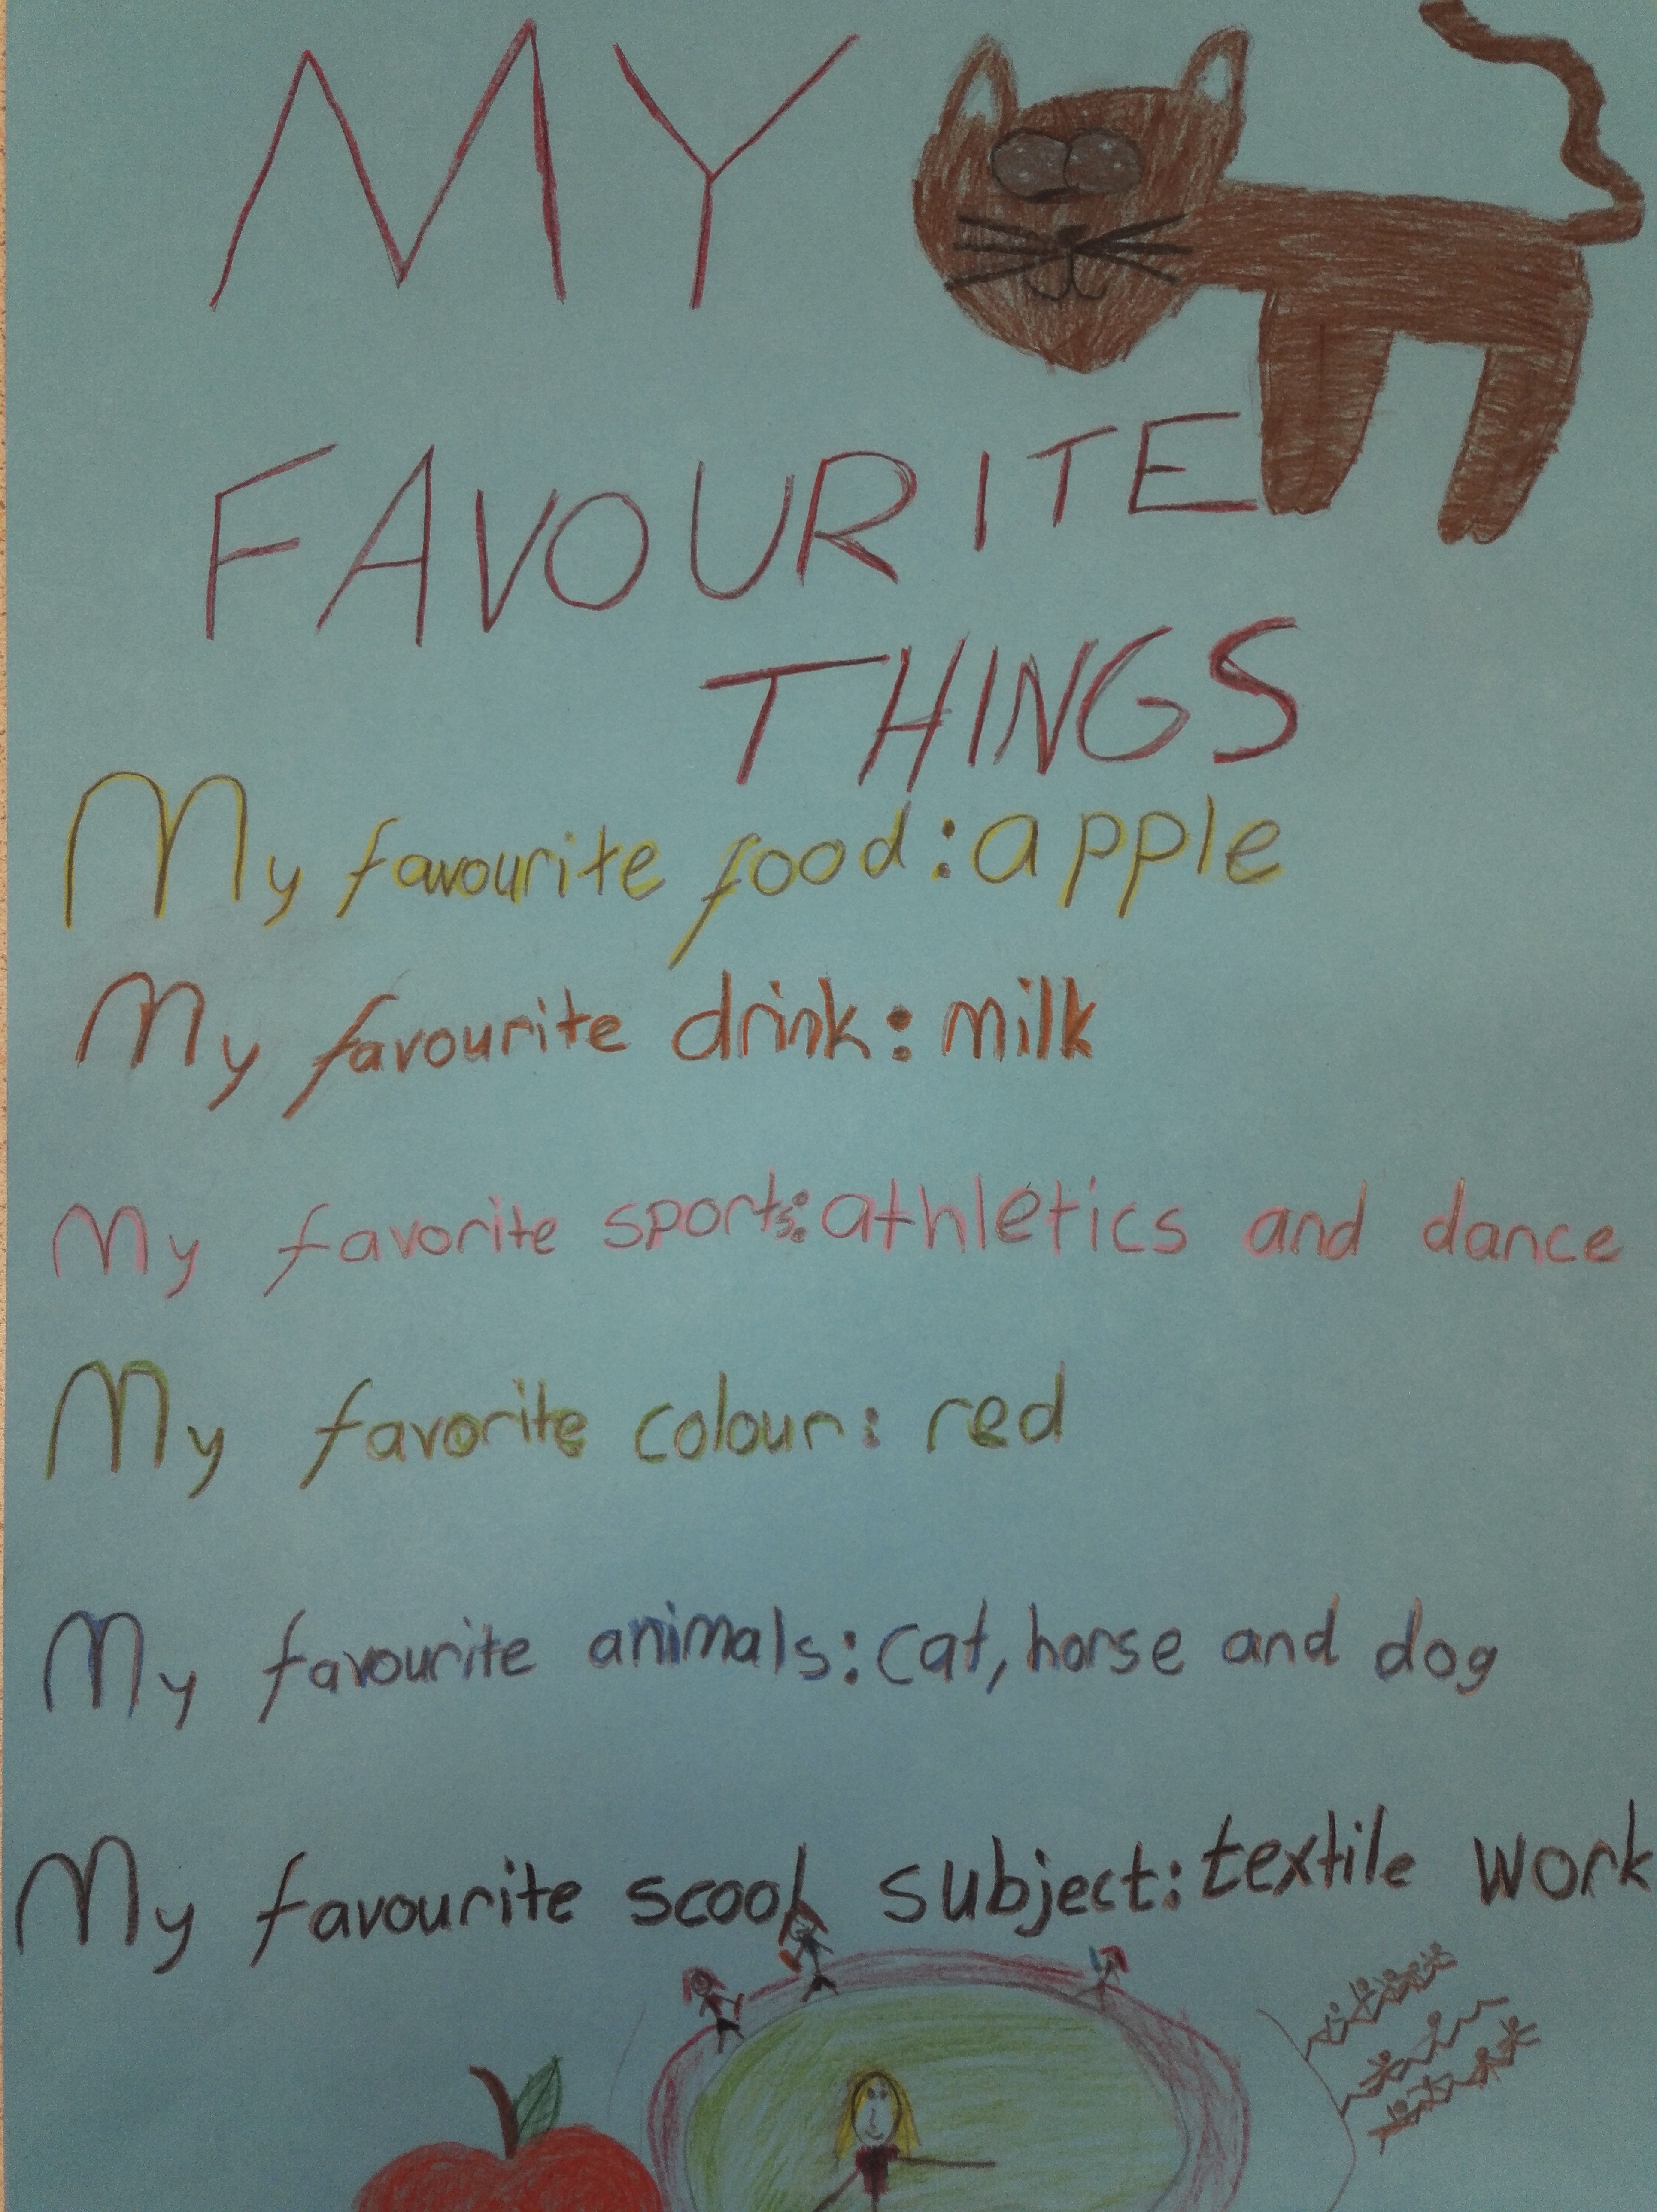 MY
FAVOURITE
THINGS
My favourite food:apple
My favourite drink: milk
My favorite sports:athletics and dance
My favorite colour: red
My favourite animals:cat, horse and dog
My favourite scool subject:textile work